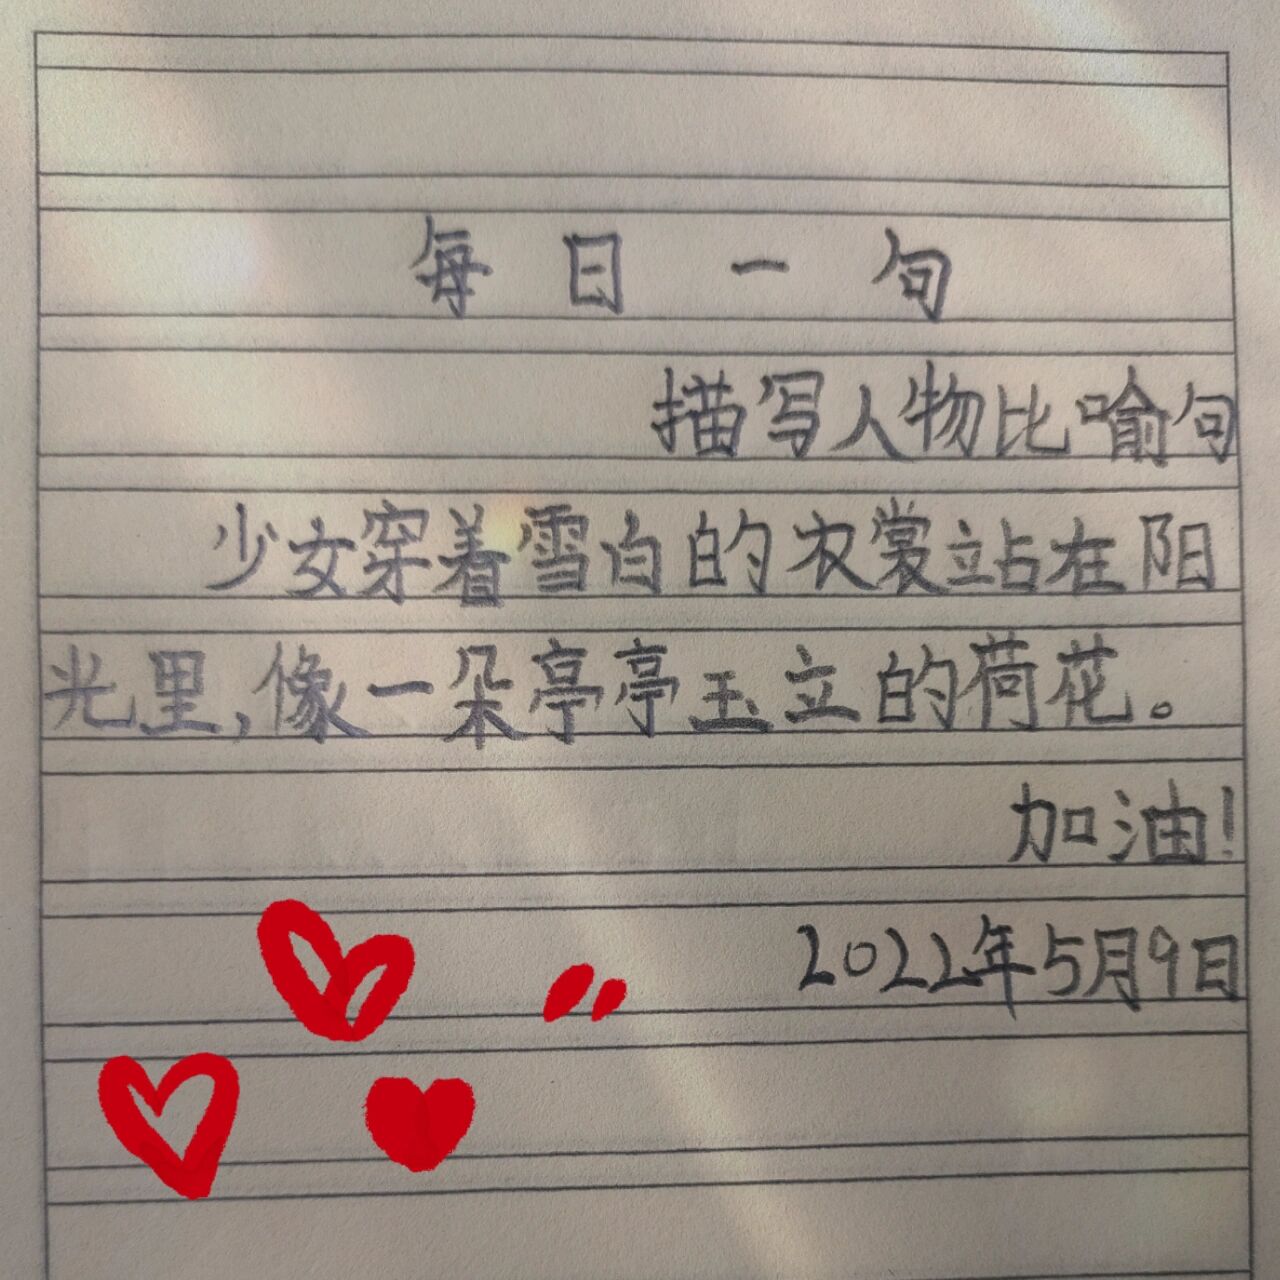 每日一句
描写人物比喻句
少女穿着雪白的衣裳立站在阳
光里,像一朵亭亭玉立的荷花。
加油!
2022年5月9日